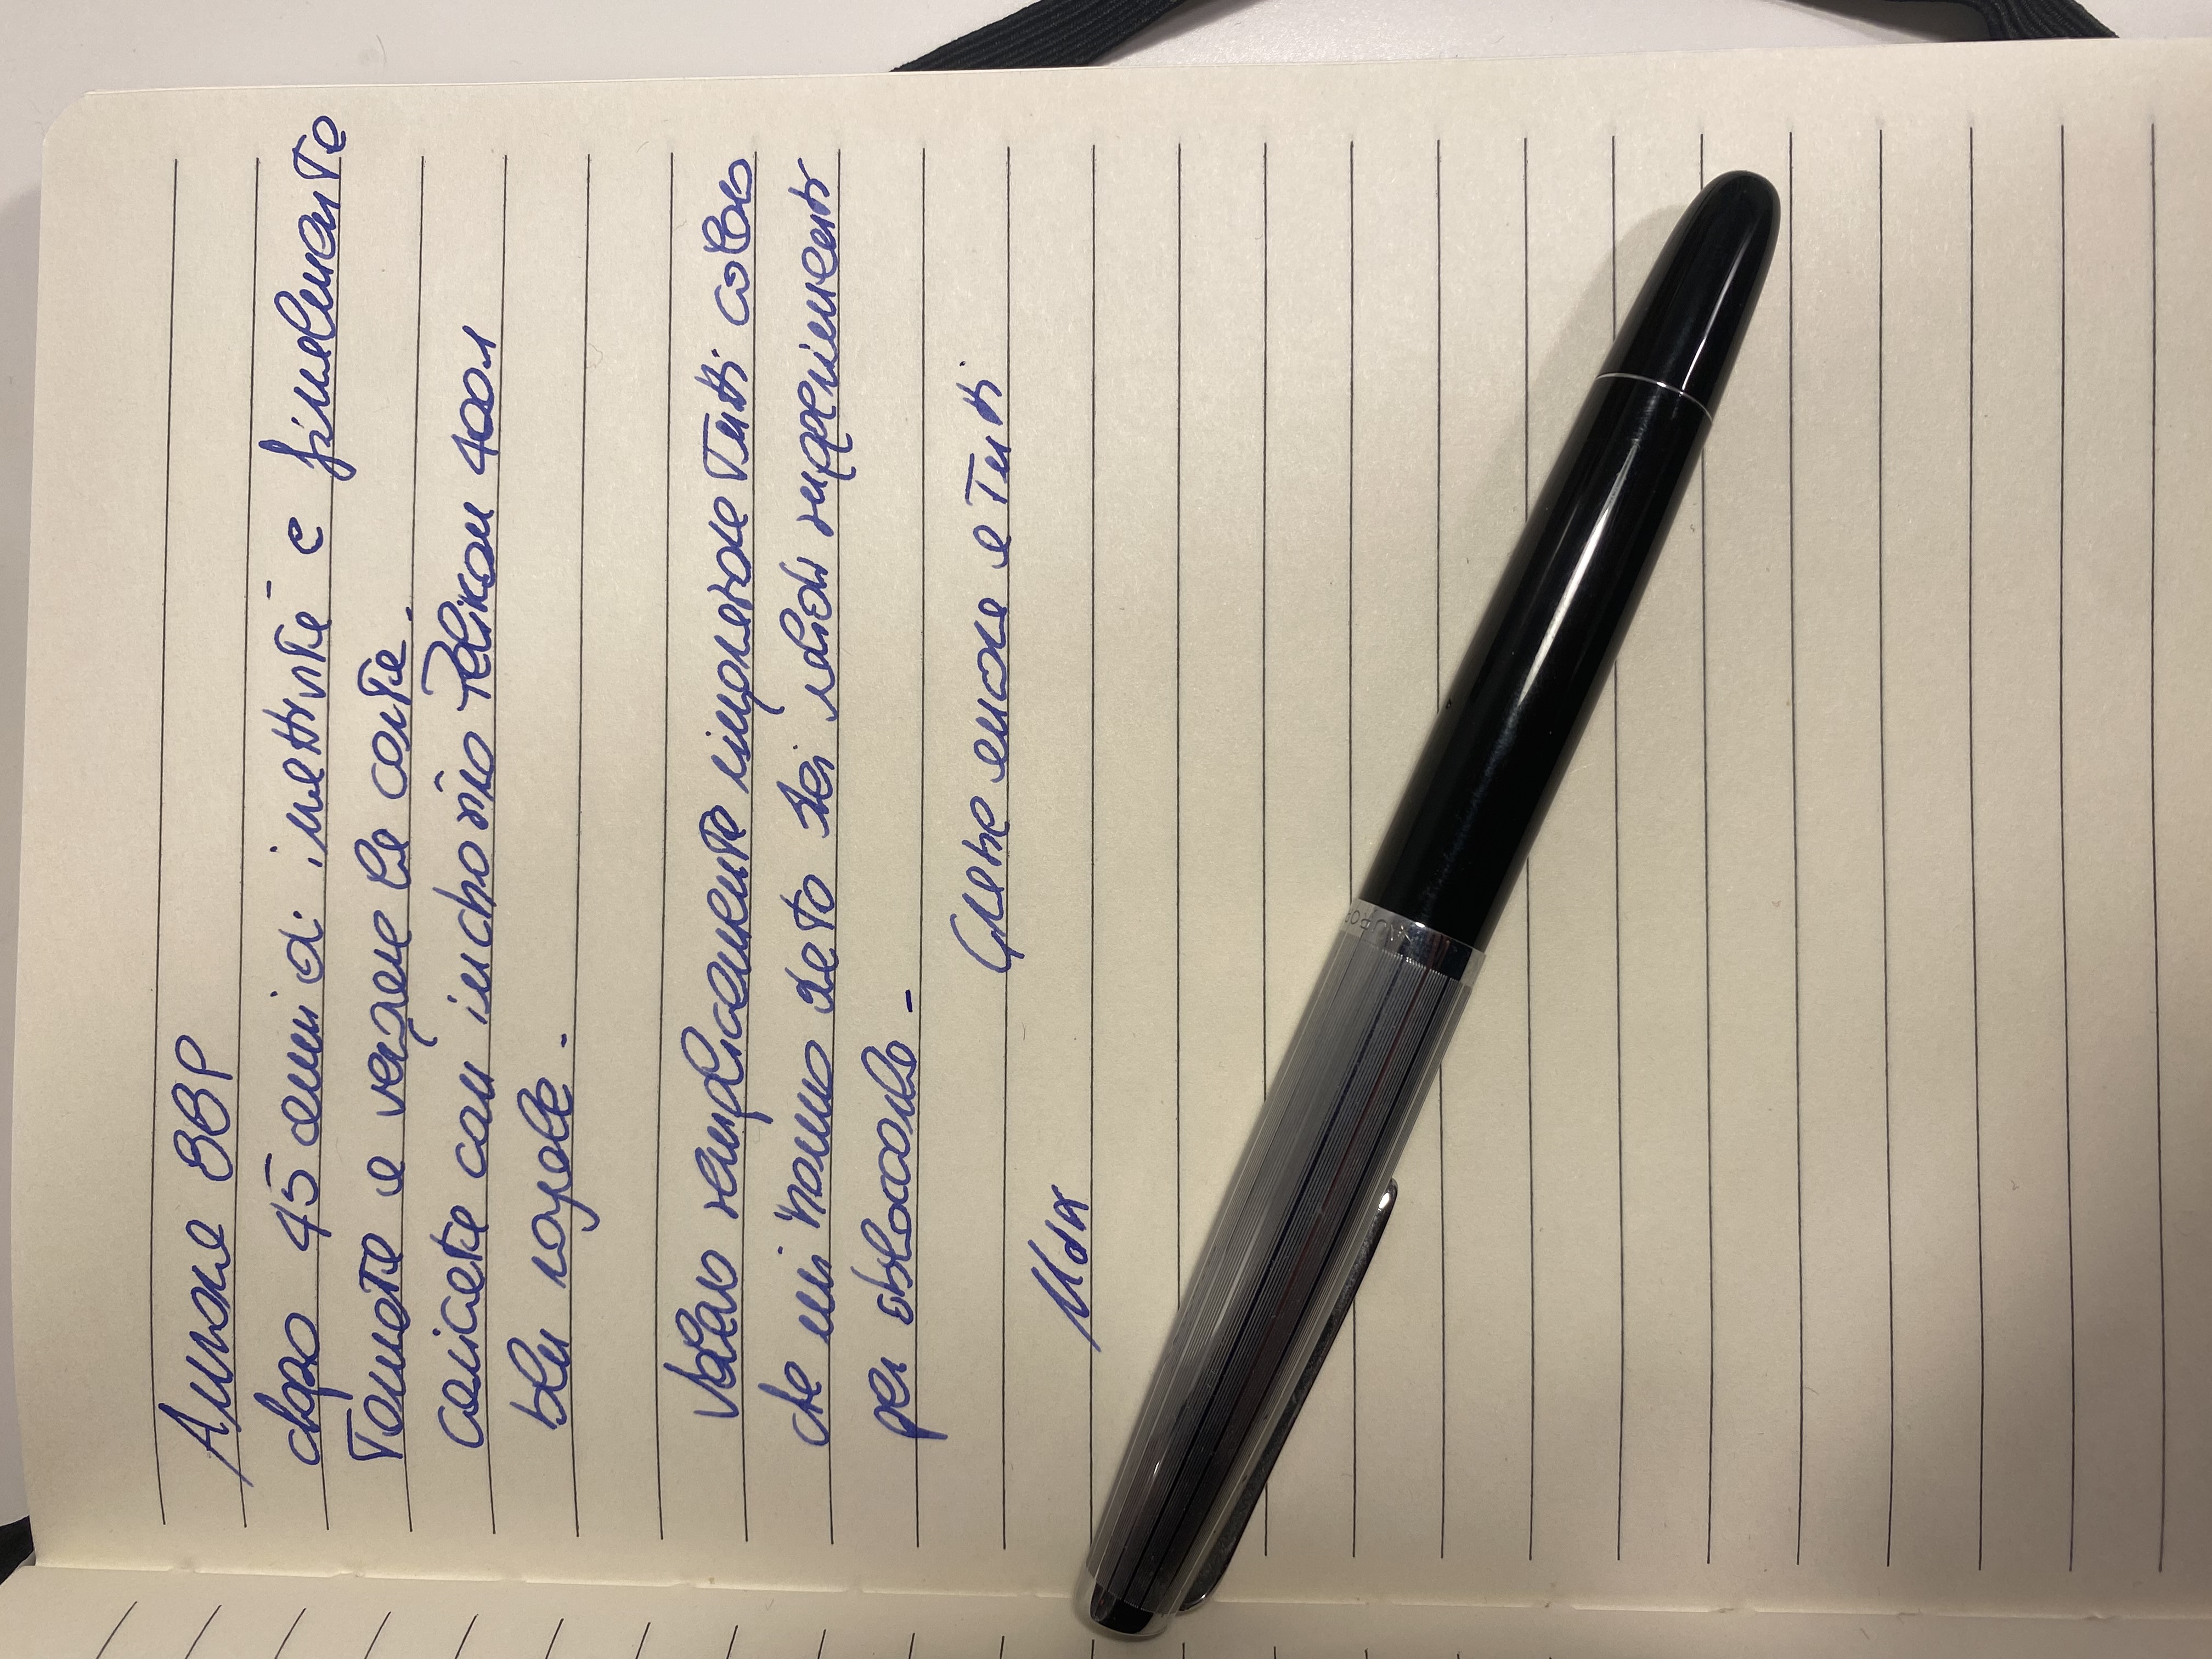 Aurora 88P
dopo 45 anni di inattività e finalmente
tornata a vergare le carte.
caricata con inchiostro Pelikan 4001
blu royale.
Volevo semplicemente ringraziare tutti coloro
che mi hanno dato dei validi suggerimenti
per sbloccarla -
Grazie ancora a Tutti
AUROR